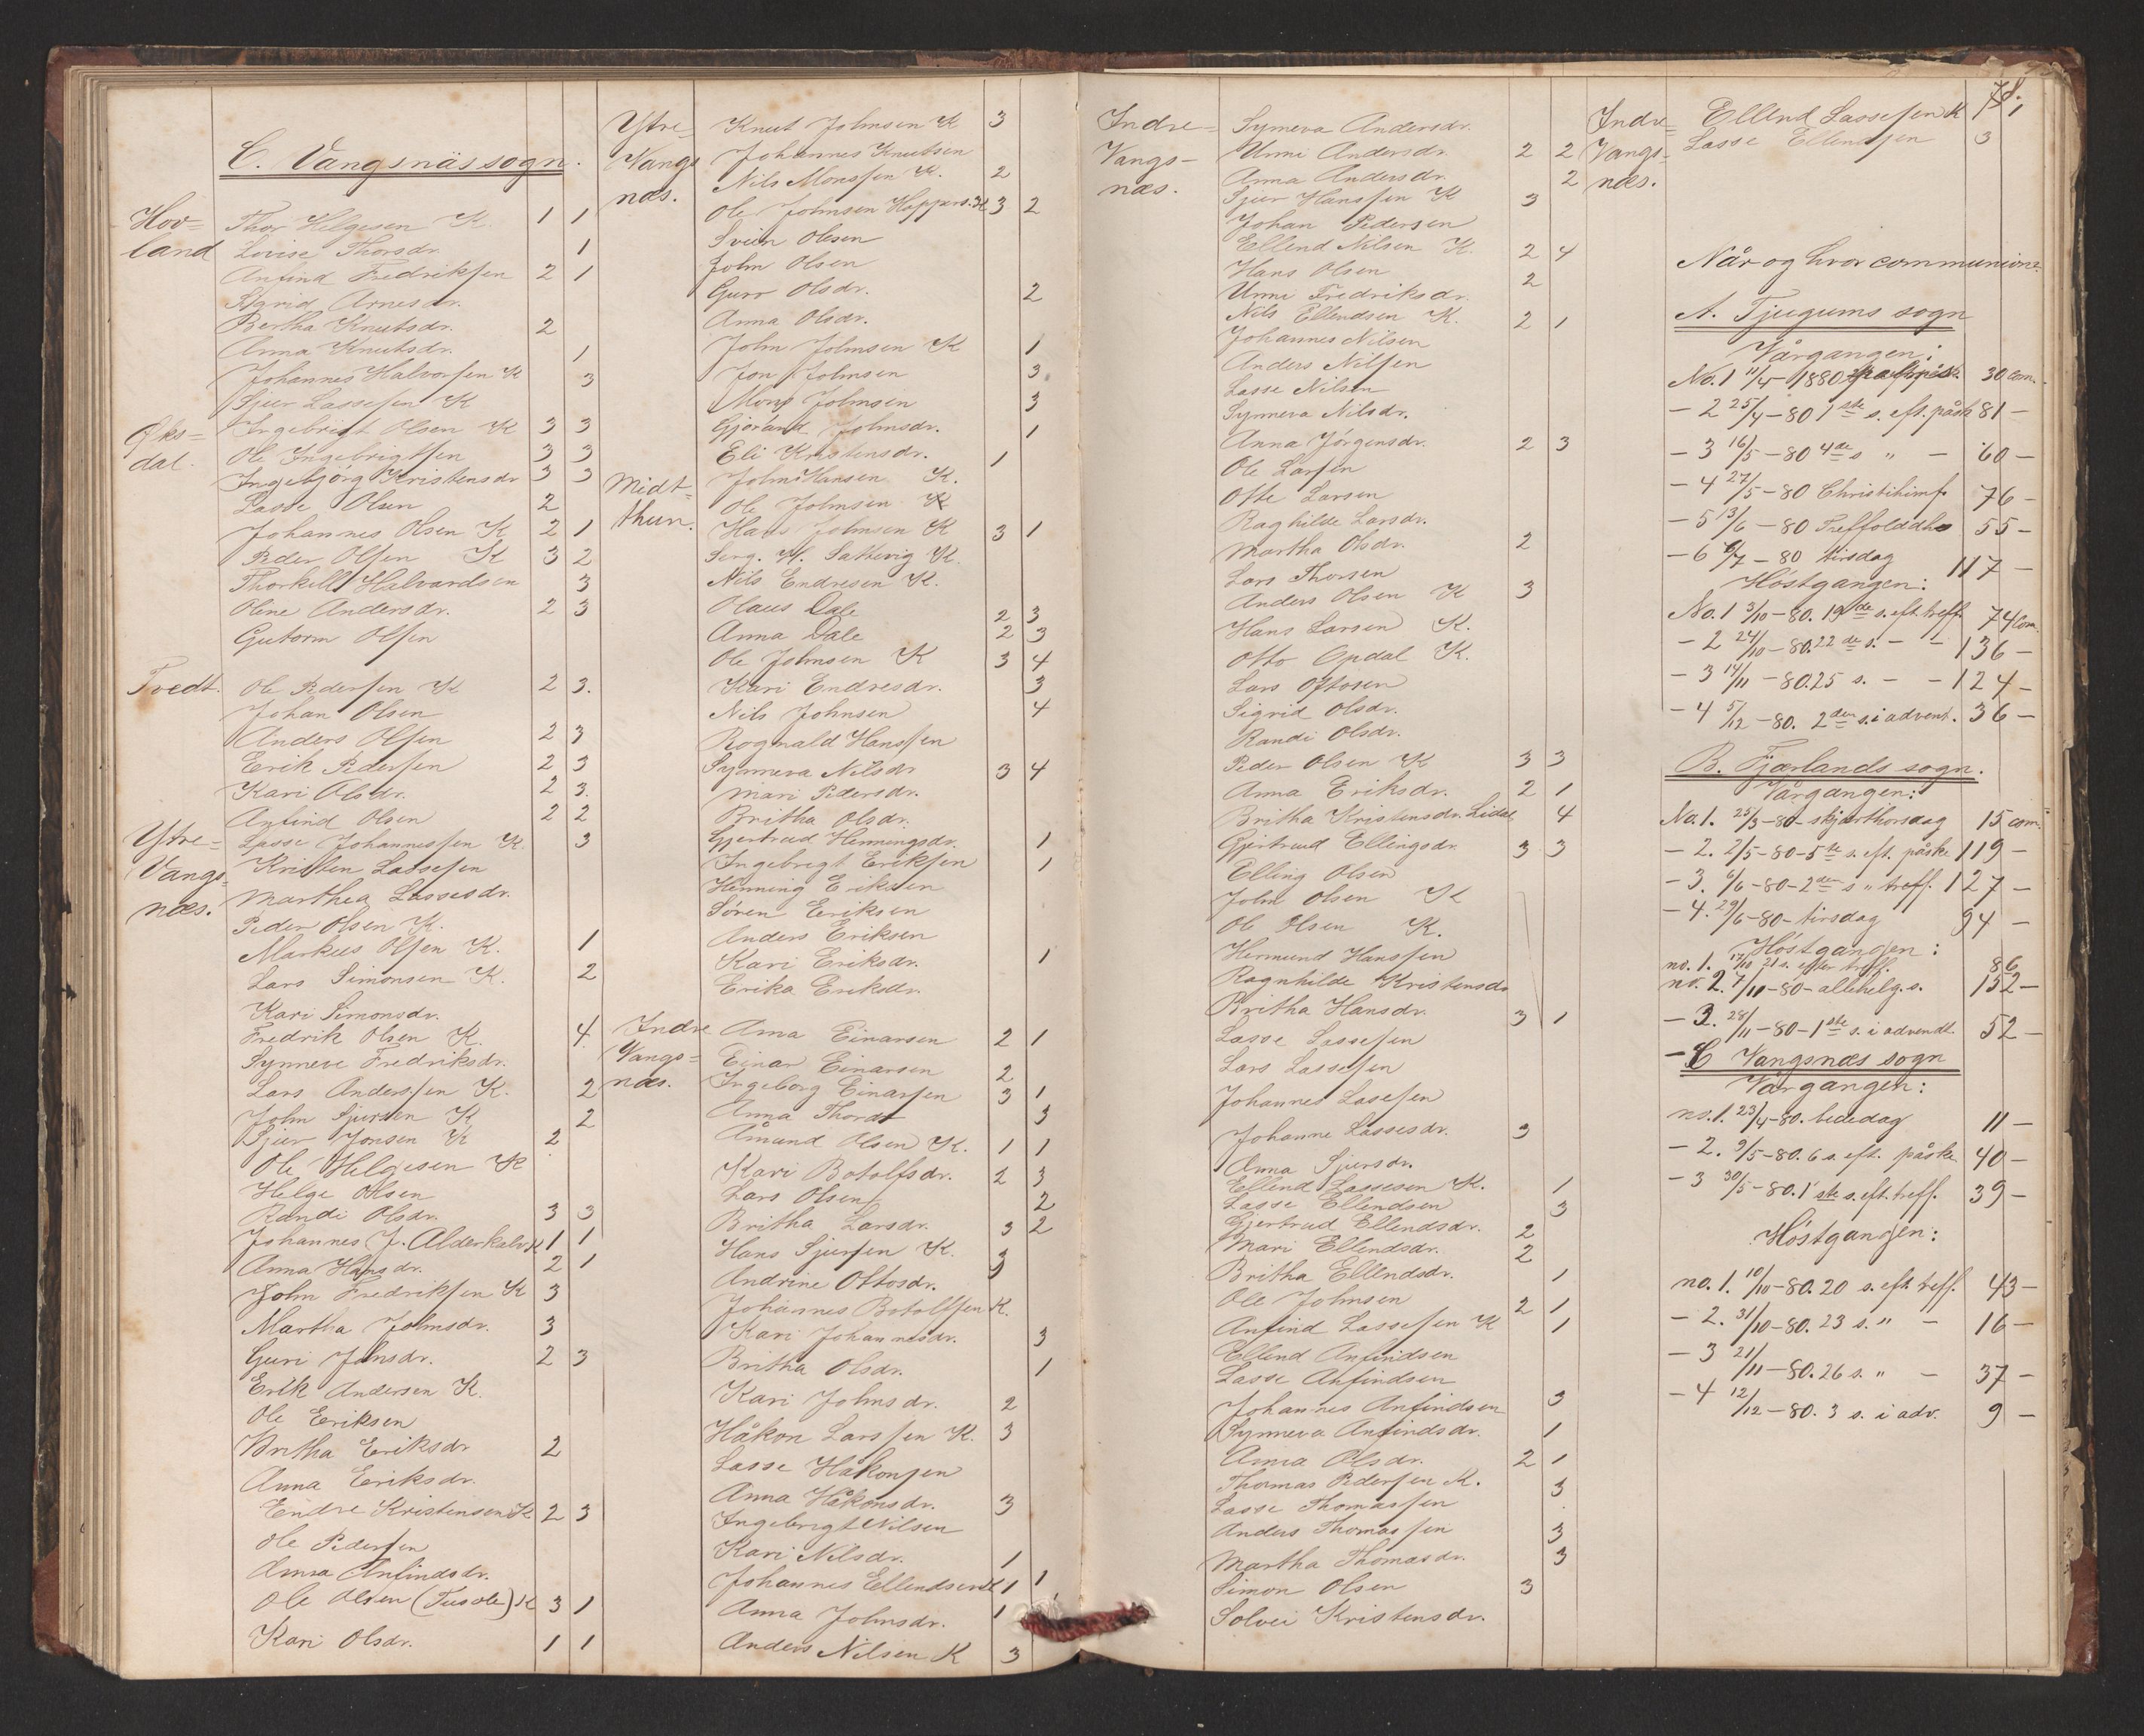 C. Vangsnæs sogn.
Hov=
land
Thor Helgesen K. 1 1
Lovise Thorsdr. 1
Anfind Fredriksen 2 1
Sigrid Arnesdr.
Bertha Knutsdr. 2
Anna Knutsdr. 1
Johannes Halvorsen K 3
Sjur Lassesen K
Øks=
dal.
Ingebrigt Olsen K 3 3
Ole Ingebrigtsen 3 3
Ingebjörg Kristensdr 3 3
Lasse Olsen 2
Johannes Olsen K 2 1
Peder Olsen K 3 2
Thorkell Halvardsen 3
Oline Andersdr. 2 3
Gutorm Olsen
Tvedt.
Ole Pedersen K 2 3.
Johan Olsen
Anders Olsen 2 3
Erik Pedersen 2 3
Kari Olsdr. 2 3.
Anfind Olsen 2 2
Ytre=
Vangs=
næs.
Lasse Johannessen K. 3
Kristen Lassesen
Marthea Lassesdr.
Peder Olsen K.
Markus Olsen K. 1
Lars Simonsen K. 2
Kari Simonsdr.
Fredrik Olsen K. 4
Synneve Fredriksdr.
Lars Anderssen K. 2
John Sjursen K 2
Sjur Jonsen K 2
Ole Helgesen K
Helge Olsen
Randi Olsdr. 3 3
Johannes J. Alderkalv K 1 1
Anna Hansdr. 2 1
John Fredriksen K 3
Martha Johnsdr. 3
Guri Johnsdr. 2 3
Erik Andersen K.
Ole Eriksen
Britha Eriksdr 2
Anna Eriksdr.
Endre Kristensen K 2 3
Ole Pedersen
Anna Anfindsdr.
Ole Olsen K 3 1
Kari Olsdr. 1 1
Ytre=
Vangs
næs.
Knut Johnsen K 3
Johannes Knutsen
Nils Monssen K. 2
Ole Johnsen K 3 2
Svein Olsen
John Olsen
Guro Olsdr. 2
Anna Olsdr.
John Johnsen K 1
Jon Johnsen 3
Mons Johnsen 3
Gjörand Johnsdr. 1
Eli Kristensdr. 1
Midt=
thun.
John Hansen K.
Ole Johnsen K
Hans Johnsen K 3 1
Serg. K.
Nils Endresen K.
Olaus Dale 2 3
Anna Dale 2 3
Ole Johnsen K 3 4
Kari Endresdr. 3
Nils Johnsen 4
Rognald Hanssen
Synneva Nilsdr 3 4
Mari Pedersdr.
Britha Olsdr.
Gjertrud Henningsdr. 1
Ingebregt Eriksen 1
Henning Eriksen
Søren Eriksen
Anders Eriksen
Kari Eriksdr. 1
Erika Eriksdr.
Indre
Vangs=
næs.
Anna Einarsen 2 1
Einar Einarsen 2
Ingeborg Einarsen 3 1
Anna Thordr 3
Åmund Olsen K. 1 1
Kari Botolfsdr. 2 3
Lars Olsen 2
Britha Larsdr. 3 2
Hans Sjursen K. 3
Andrine Ottosdr.
Johannes Botolfsen K.
Kari Johannesdr. 3
Britha Olsdr. 1
Kari Johnsdr. 2
Håkon Larssen K. 3
Lasse Håkonsen
Anna Håkonsdr. 3
Ingebrigt Nilsen
Kari Nilsdr. 1
Johannes Ellendsen K 1 1
Anna Johnsdr. 1
Anders Nilsen K 3
Indre=
Vangs-
næs.
Synneva Andersdr.
Unni Andersdr. 2 2
Anna Andersdr. 2
Sjur Hanssen K 3
Johan Pedersen
Ellend Nilsen K. 2 4
Hans Olsen 2
Unni Fredriksdr.
Nils Ellendsen K. 2 1
Johannes Nilsen
Anders Nilsen
Lasse Nilsen
Synneva Nilsdr.
Anna Jörgensdr. 2 3
Ole Larsen
Otte Larsen
Raghilde Larsdr.
Martha Olsdr. 2
Lars Thorsen
Anders Olsen K 3
Hans Larsen K.
Otto Opdal K.
Lars Ottosen
Sigrid Olsdr.
Randi Olsdr.
Peder Olsen K 3 3
Anna Eriksdr. 2 1
Britha Kristensdr. Lidal 4
Gjertrud Ellingsdr. 3 3
Elling Olsen
John Olsen K
Ole Olsen K.
Hermund Hanssen
Ragnhilde Kristensdr
Britha Hansdr. 3 1
Lasse Lassesen
Lars Lassesen
Johannes Lassesen
Johanne Lassesdr. 3
Anna Sjursdr.
Ellend Lassesen K. 1
Lasse Ellendsen 3
Gjertrud Ellendsdr. 2
Mari Ellendsdr. 2
Britha Ellendsdr. 1
Ole Johnsen 2 1
Anfind Lassesen K 1
Ellend Anfindsen
Lasse Anfindsen
Johannes Anfindsen 3
Synneva Anfindsdr. 1
Anna Olsdr. 2 1
Thomas Pedersen K. 3
Lasse Thomassen
Anders Thomassen 3
Martha Thomasdr. 3
Simon Olsen 3
Solvei Kristensdr.
Indre
Vangs-
næs.
Ellend Lassesen K 1 1
Lasse Ellendsen 3
Når og hvor communion:
A. Tjugums sogn
Vårgangen:
No. 1 11/4-1880 30 com.
- 2 25/4-80 1ste s. eft. påsk 81 -
- 3 16/5-80 4de s " - 60 -
- 4 27/5-80 Christihimf. 76 -
- 5 13/6-80 55 -
- 6 6/7-80 tirsdag 117 -
Höstgangen:
No. 1 3/10-80. 19de s. eft. treff. 74 Com.
- 2 24/10-80. 22de s. - - 136 -
- 3 14/11-80. 25 s. - - 124 -
- 4 5/12-80. 2den s. i advent. 36 -
B. Fjærlands sogn.
Vårgangen:
No. 1. 25/3-80- skjærthorsdag 15 com.
- 2. 2/5-80-5te s. eft. påske 119 -
- 3. 6/6-80-2den s " treff. 127 -
- 4. 29/6-80- tirsdag 94 -
Höstgangen:
no. 1. 17/10 21 s. efter treff. 86
no. 2. 7/11-80- allehelg. s. 152 -
- 3. 28/11-80-1ste s. i advendt. 52 -
- C Vangsnæs sogn
Vårgangen:
no. 1. 23/4-80. bededag 11 -
- 2. 9/5-80. 6 s. eft. påske 40 -
- 3 30/5-80. 1ste s. eft. treff. 39 -
Höstgangen:
no. 1. 10/10-80. 20 s. eft. treff. 43 -
- 2. 31/10-80. 23 s. " - 16 -
- 3 21/11-80. 26 s. " - 37 -
- 4 12/12-80. 3 s. i adv. 9 -